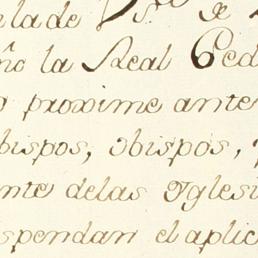 la de V. S. de
ño la Real Ced
o proxime ante
bispos, obispos, y
nte delas Yglesi
spendan el aplic